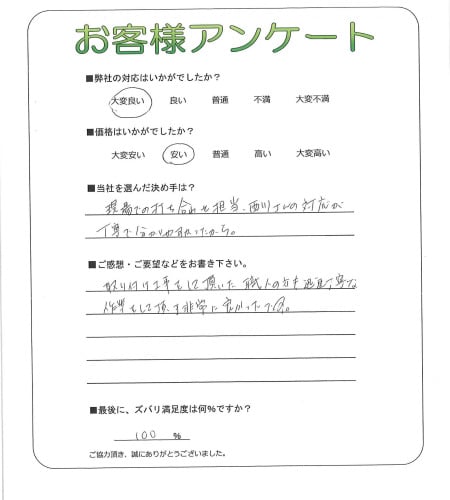 お客様アンケート
■弊社の対応はいかがでしたか?
大変良い 良い 普通 不満 大変不満
■価格はいかがでしたか?
大変安い 安い 普通 高い 大変高い
■当社を選んだ決め手は?
現場での打ち合わせも担当、西川さんの対応が
丁寧で分かりやすかったから。
■ご感想・ご要望などをお書き下さい。
取り付け工事をして頂いた職人の方も 丁寧な
作業をして頂き非常に良かったです。
■最後に、ズバリ満足度は何%ですか?
100 %
ご協力頂き、誠にありがとうございました。